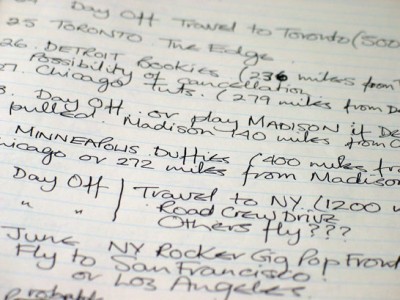 Day Off Travel to Toronto (500
25 TORONTO The Edge
26. DETROIT Bookies (236 miles from T
Possibility of cancellation
27. Chicago Tuts. (279 miles from De
8. Day Off. or play MADISON if De
pulled. Madison 140 miles from C
MINNEAPOLIS Duffies (400 miles fro
hicago or 272 miles from Madison
Day Off Travel to NY. (1200 m
" " Road Crew Drive
Others fly???
June NY Rocker Gig Pop Front
Fly to San Francisco.
or Los Angeles.
Probable